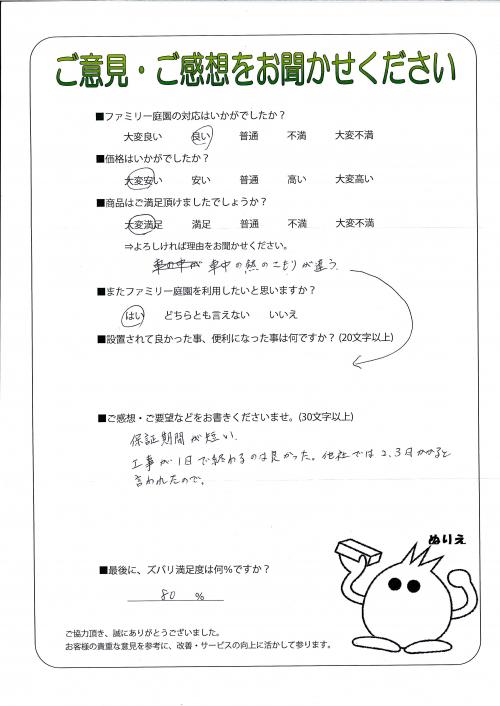 ご意見・ご感想をお聞かせください
■ファミリー庭園の対応はいかがでしたか？
大変良い　良い　普通　不満　大変不満
■価格はいかがでしたか？
大変安い　安い　普通　高い　大変高い
■商品はご満足頂けましたでしょうか？
大変満足　満足　普通　不満　大変不満
⇒よろしければ理由をお聞かせください。
車の中が 車中の熱のこもりが違う
■またファミリー庭園を利用したいと思いますか？
はい　どちらとも言えない　いいえ
■設置されて良かった事、便利になった事は何ですか？(20文字以上)
■ご感想・ご要望などをお書きくださいませ。(30文字以上)
保証期間が短い.
工事が1日で終わるのは良かった。他社では2、3日かかると
言われたので。
ぬりえ
■最後に、ズバリ満足度は何%ですか？
80 %
ご協力頂き、誠にありがとうございました。
お客様の貴重な意見を参考に、改善・サービスの向上に活かして参ります。